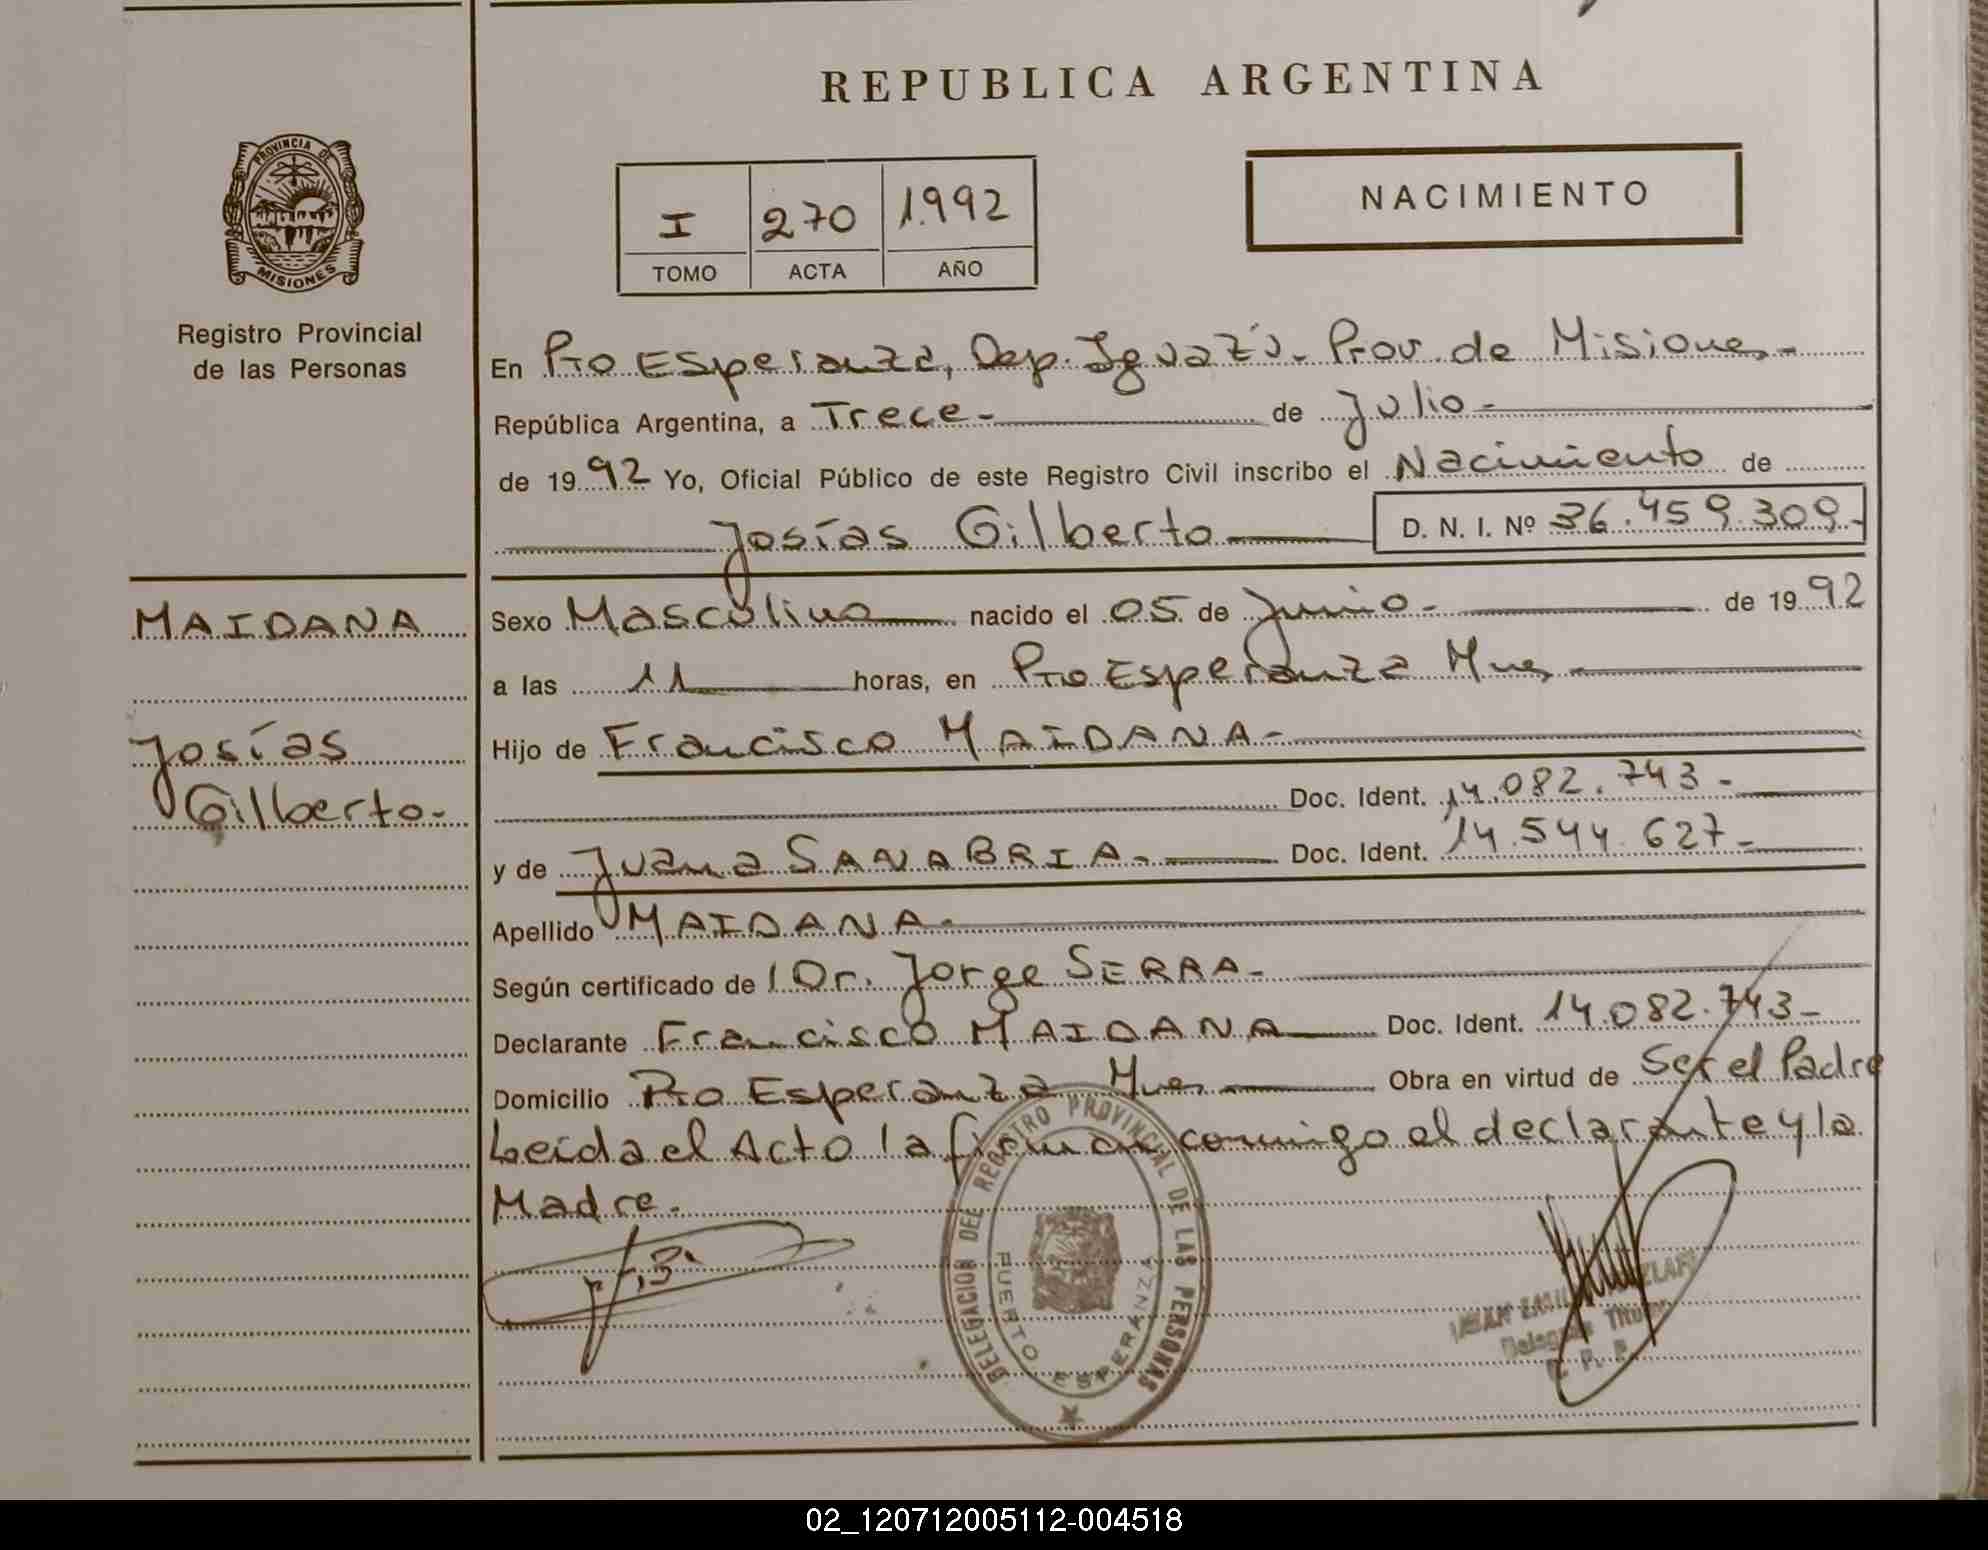 REPUBLICA ARGENTINA
PROVINCIA DE
MISIONES
Registro Provincial
de las Personas
I 270 1.992
TOMO ACTA AÑO
NACIMIENTO
En Pto Esperanza, Dep. Iguazú. Prov. de Misiones-
República Argentina, a Trece- de Julio-
de 1992 Yo, Oficial Público de este Registro Civil inscribo el Nacimiento de
Josías Gilberto D. N. I. Nº 36.459.309-
MAIDANA
Josías
Gilberto-
Sexo Masculino nacido el 05 de Junio- de 1992
a las 11 horas, en Pto Esperanza Mnes-
Hijo de Francisco MAIDANA-
Doc. Ident. 14.082.743-
y de Juana SANABRIA- Doc. Ident. 14.544.627-
Apellido MAIDANA-
Según certificado de l Dr. Jorge SERRA-
Declarante Francisco MAIDANA Doc. Ident. 14.082.743-
Domicilio Pto Esperanza Mnes Obra en virtud de Ser el Padre
Leida el Acto la firman conmigo el declarante y la
Madre.
DELEGACION DEL REGISTRO PROVINCIAL DE LAS PERSONAS
PUERTO ESPERANZA
Titular
02_120712005112-004518